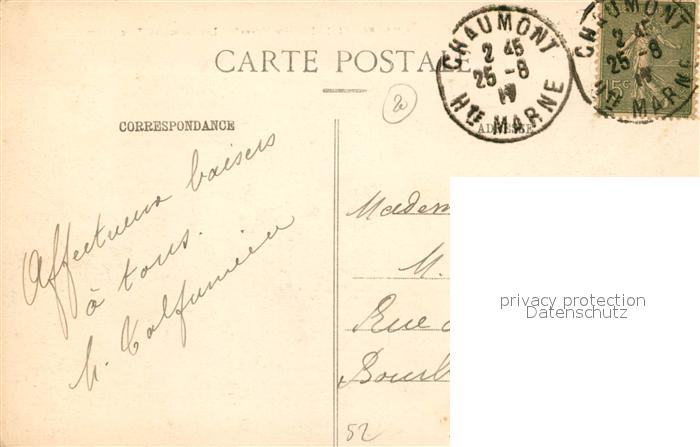 CARTE POSTALE
CHAUMONT
2 45
25 -8
17
Hte MARNE
CHAUMONT
2 45
25 -8
17
Hte MARNE
15c
20
CORRESPONDANCE
ADRESSE
Affectueux baisers
à tous.
Madem
M.
Rue
Bourb
privacy protection
Datenschutz
52